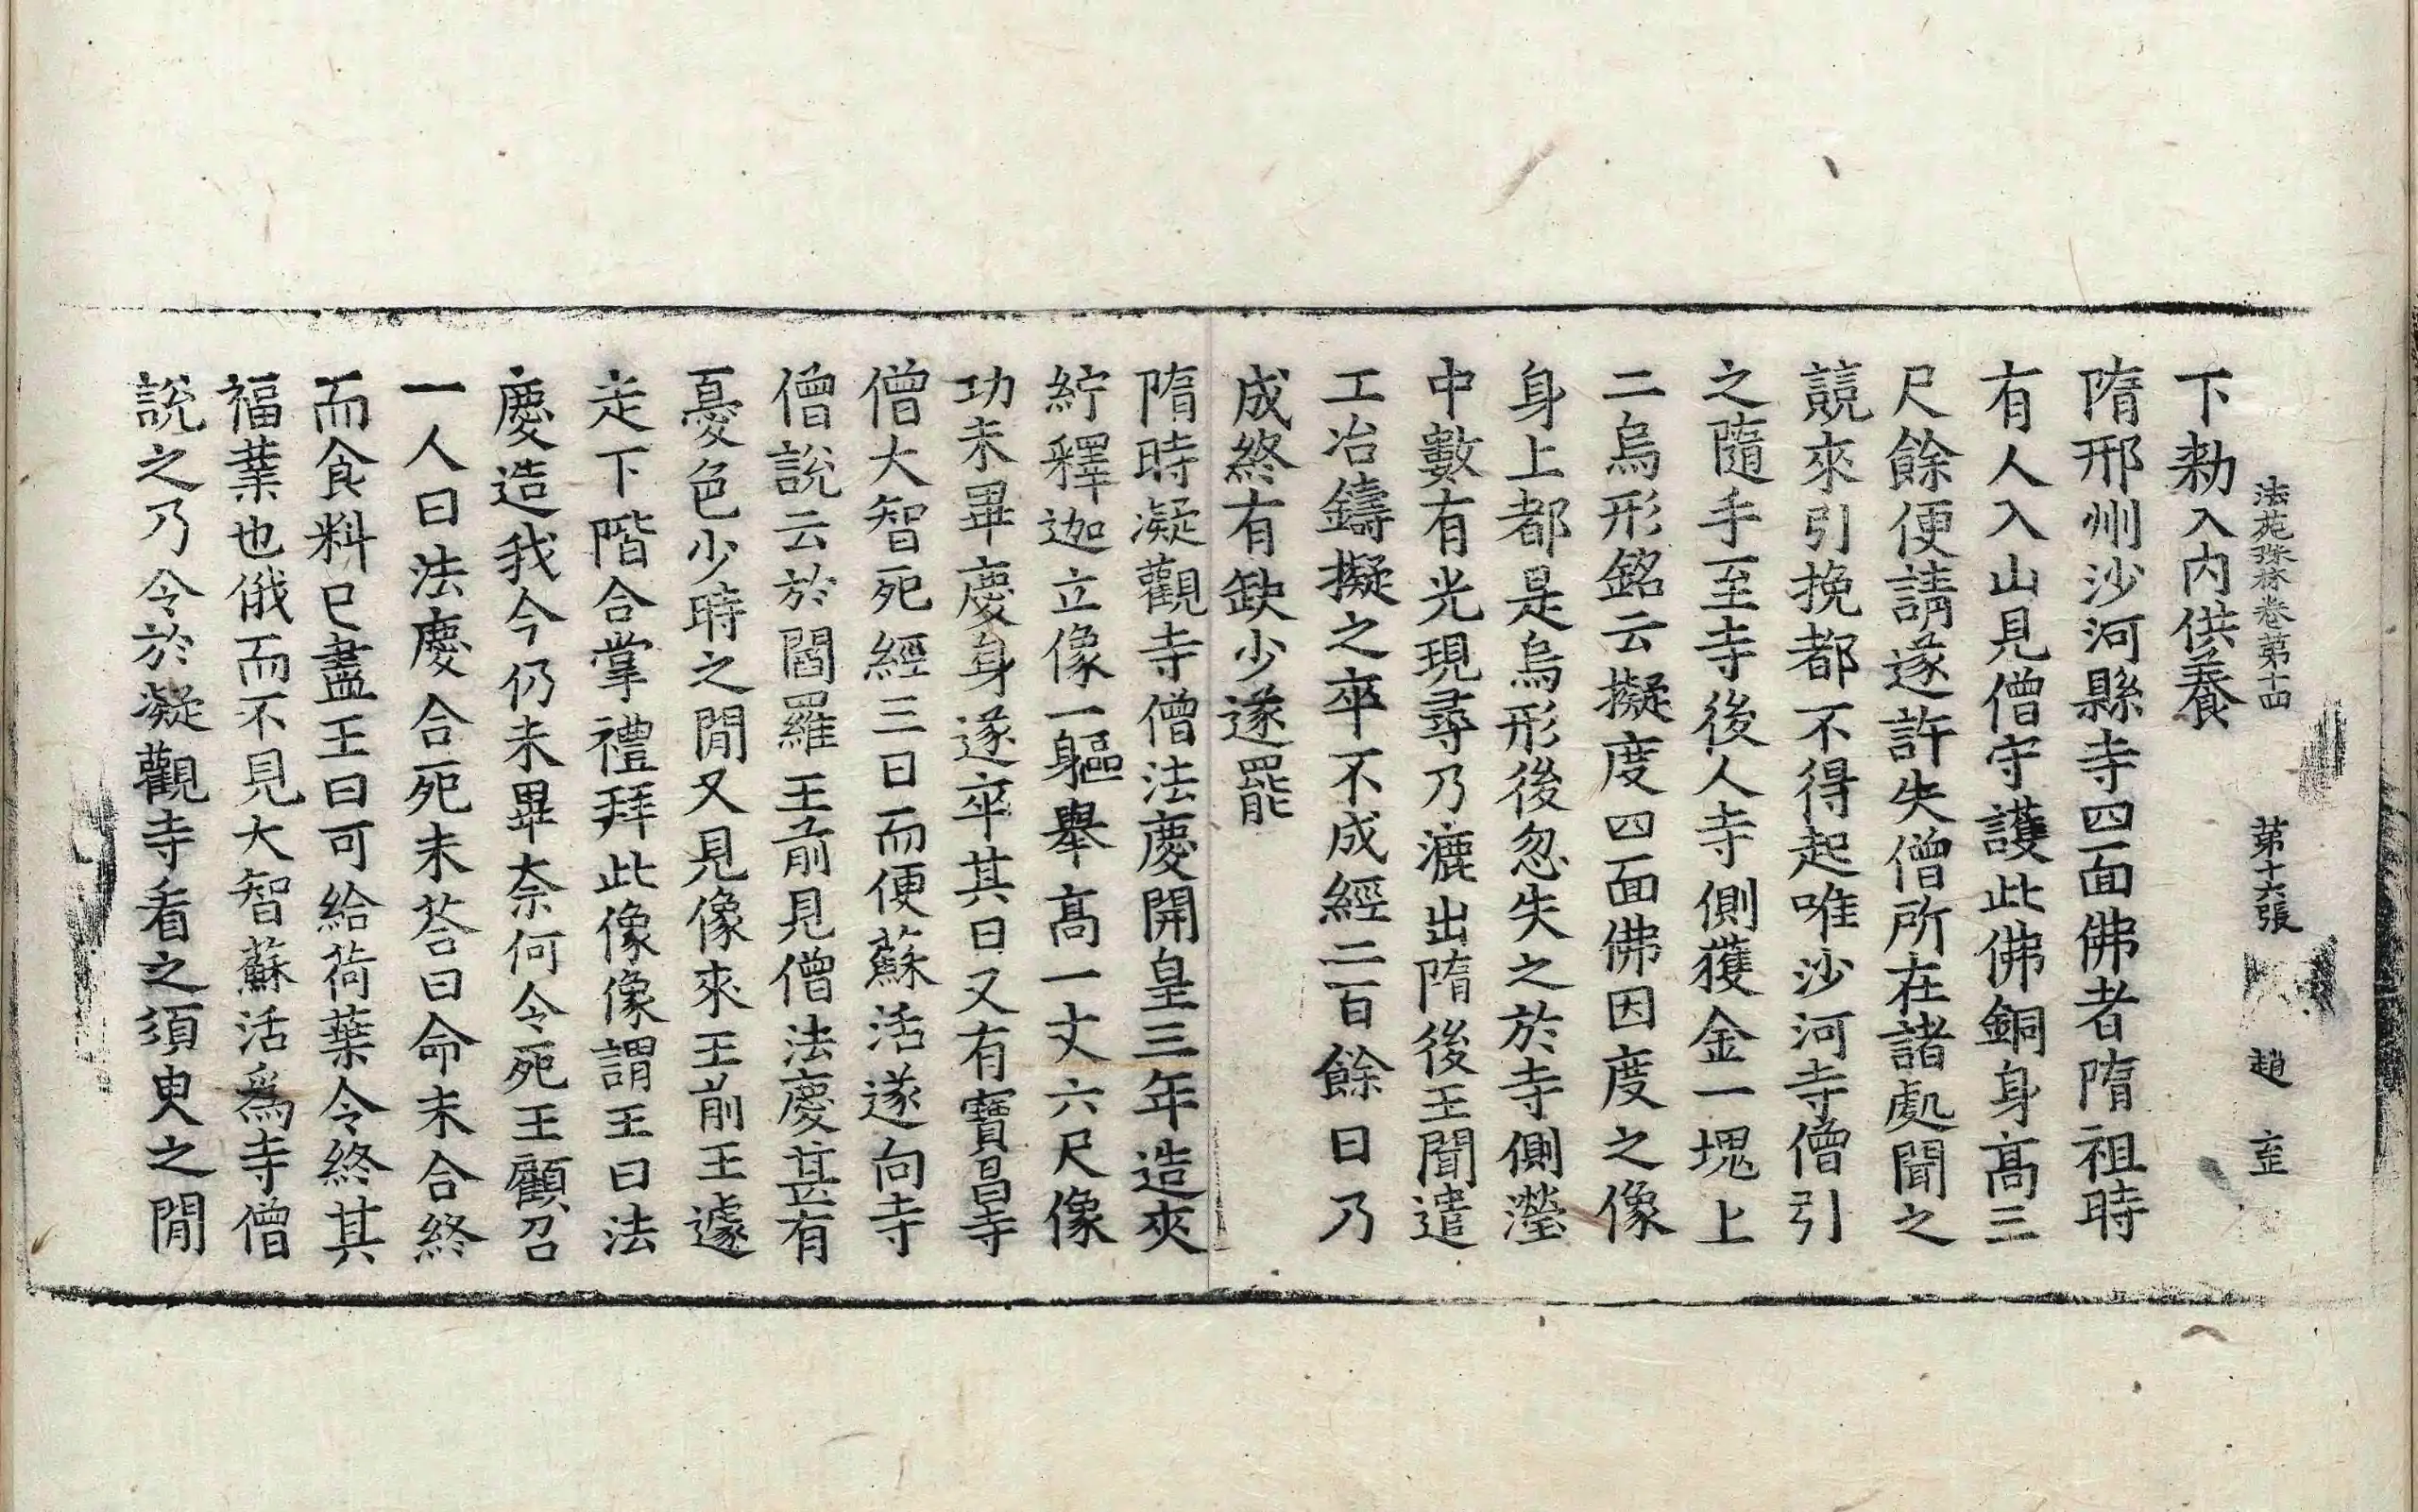 法苑珠林卷第十四 第十六張 趙 至
下勑入内供養
隋邢州沙河縣寺四面佛者隋祖時
有人入山見僧守護此佛銅身高三
尺餘便請遂許失僧所在諸處聞之
競來引挽都不得起唯沙河寺僧引
之隨手至寺後人寺側獲金一塊上
二烏形銘云擬度四面佛因度之像
身上都是烏形後忽失之於寺側瀅
中數有光現尋乃漉出隋後王聞遣
工冶鑄擬之卒不成經二百餘日乃
成終有缺少遂罷
隋時凝觀寺僧法慶開皇三年造夾
紵釋迦立像一軀舉高一丈六尺像
功未畢慶身遂卒其日又有寶昌寺
僧大智死經三日而便蘇活遂向寺
僧說云於閻羅王前見僧法慶甚有
憂色少時之閒又見像來王前王遽
走下階合掌禮拜此像像謂王曰法
慶造我今仍未畢奈何令死王顧召
一人曰法慶合死未荅曰命未合終
而食料已盡王曰可給荷葉令終其
福業也俄而不見大智蘇活爲寺僧
說之乃令於凝觀寺看之須臾之閒